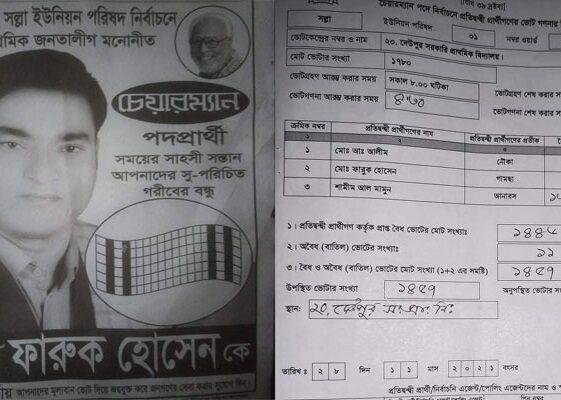 সল্লা ইউনিয়ন পরিষদ নির্বাচনে
জনতালীগ মনোনীত
চেয়ারম্যান
পদপ্রার্থী
সময়ের সাহসী সন্তান
আপনাদের সু-পরিচিত
গরীবের বন্ধু
ফারুক হোসেন কে
আপনাদের মূল্যবান ভোট দিয়ে জয়যুক্ত করে জনগণের সেবা করার সুযোগ দিন।
চেয়ারম্যান পদে নির্বাচনে প্রতিদ্বন্দ্বী প্রার্থীগণের ভোট গণনার
সল্লা ইউনিয়ন পরিষদ ০১ নম্বর ওয়ার্ড
ভোটকেন্দ্রের নম্বর ও নাম ২০. দেউপুর সরকারি প্রাথমিক বিদ্যালয়।
মোট ভোটার সংখ্যা ১৭৮০
ভোটগ্রহণ আরম্ভ করার সময় সকাল ৮.০০ ঘটিকা ভোটগ্রহণ শেষ করার
ভোটগণনা আরম্ভ করার সময় ভোটগণনা শেষ করার
ক্রমিক নম্বর প্রতিদ্বন্দ্বী প্রার্থীগণের নাম প্রতিদ্বন্দ্বী প্রার্থীগণের প্রতীক
১ ২ ৩
১ মোঃ আঃ আলীম নৌকা
২ মোঃ ফারুক হোসেন গামছা
৩ শামীম আল মামুন আনারস
১। প্রতিদ্বন্দ্বী প্রার্থীগণ কর্তৃক প্রাপ্ত বৈধ ভোটের মোট সংখ্যাঃ
২। অবৈধ (বাতিল) ভোটের সংখ্যাঃ ১১
৩। বৈধ ও অবৈধ (বাতিল) ভোটের মোট সংখ্যা (১+২ এর সমষ্টি)
উপস্থিত ভোটার সংখ্যা অনুপস্থিত ভোটার
স্থান: ২০. দেউপুর
তারিখঃ ২৮ দিন ১১ মাস ২০২১ বৎসর
প্রতিদ্বন্দ্বী প্রার্থী/নির্বাচনি এজেন্ট/পোলিং এজেন্টদের নাম ও